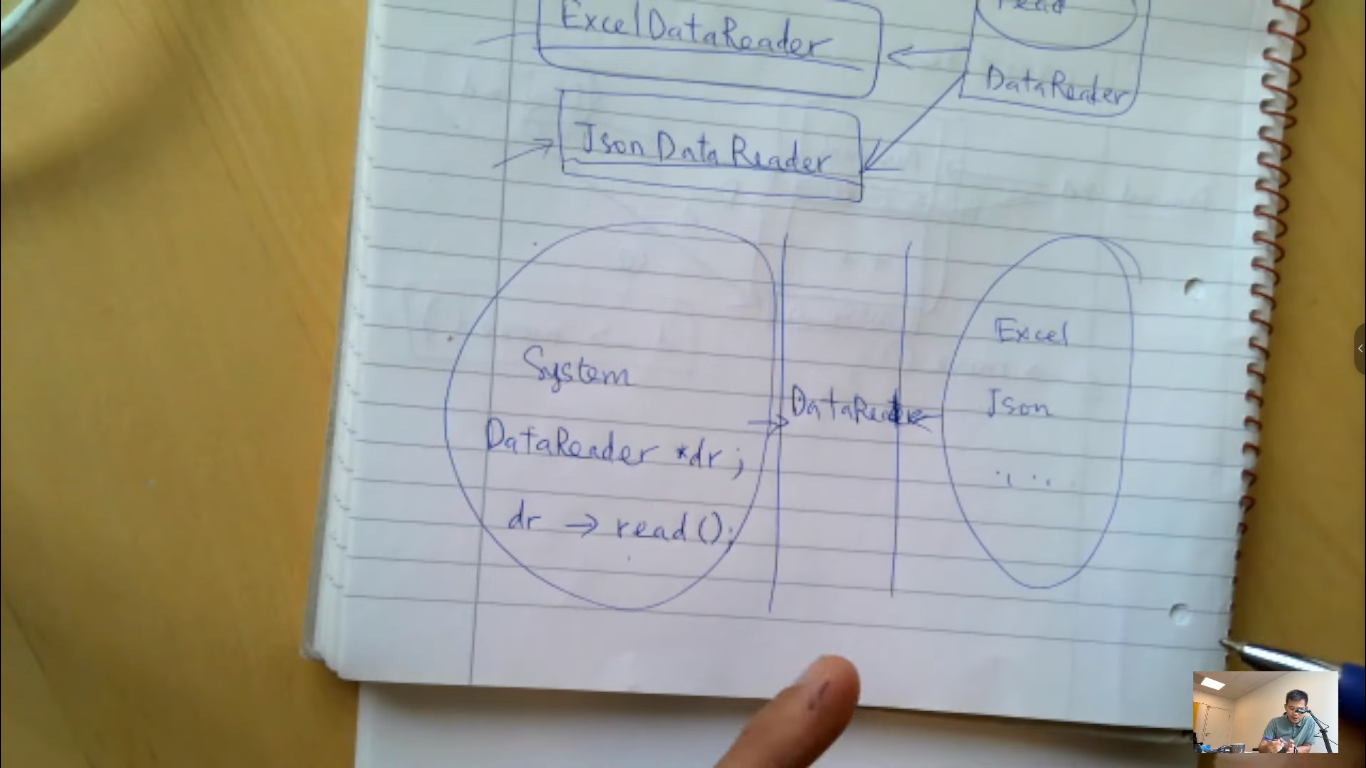 read
ExcelDataReader
DataReader
JsonDataReader
System
DataReader *dr;
dr → read();
DataReader
Excel
Json
.....